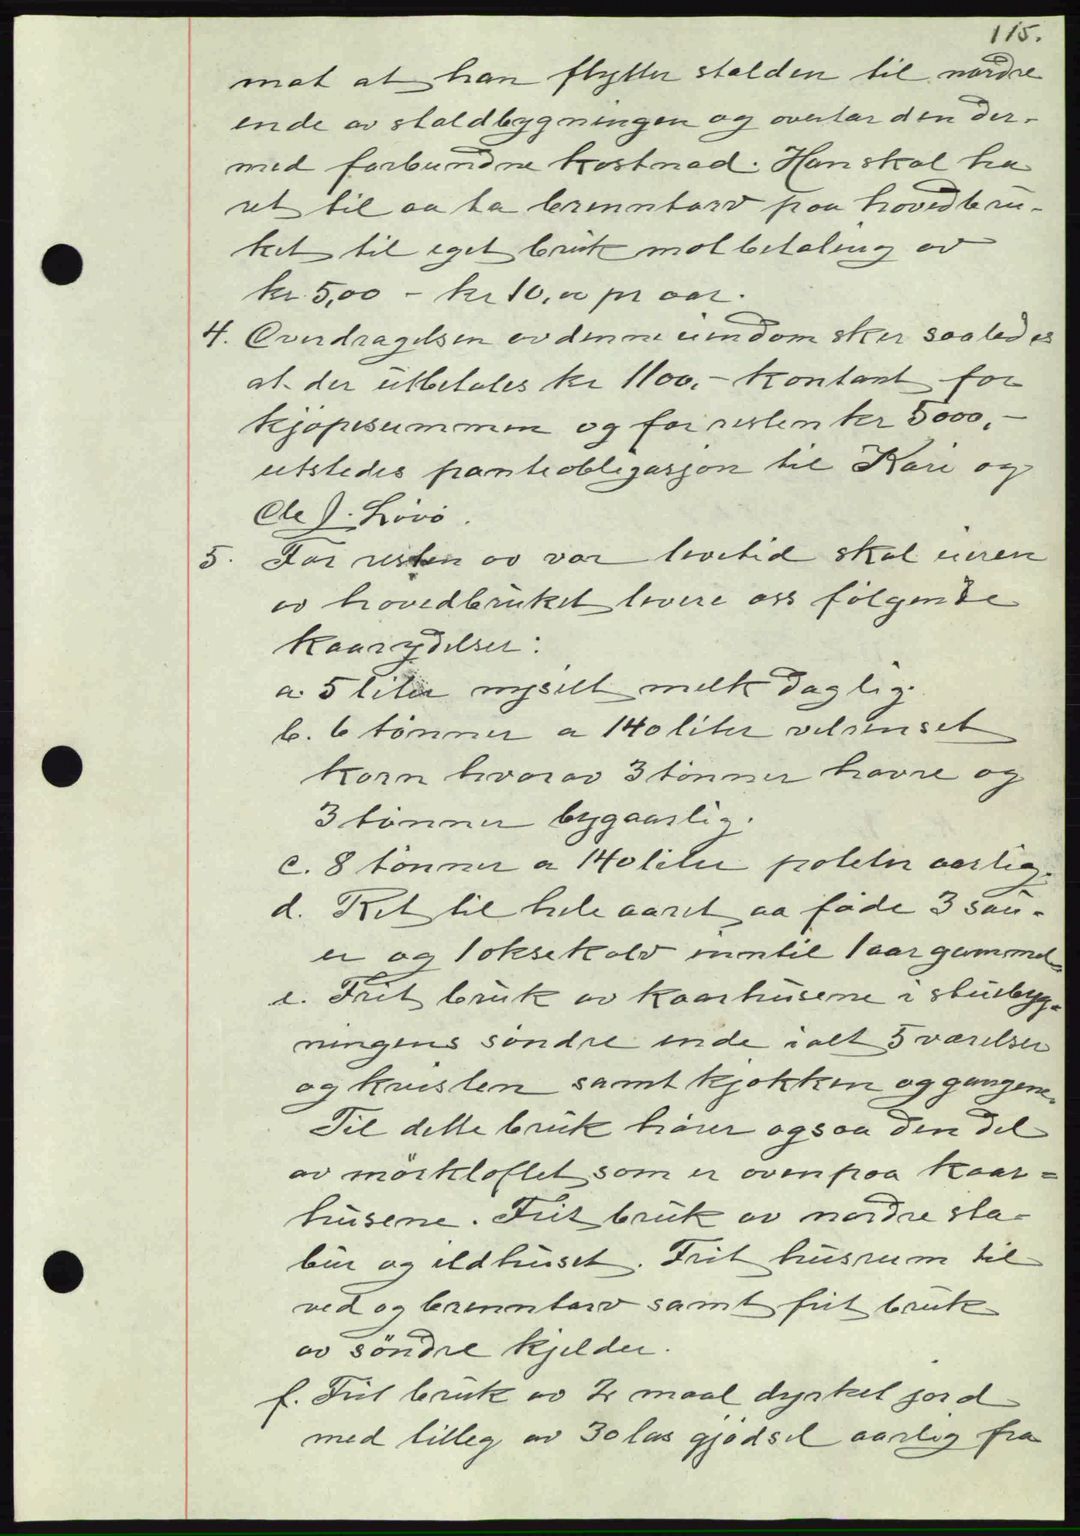 115.
mot at han flytter stalden til nordre
ende av staldbygningen og overtar den der-
med forbundne kostnad. Han skal ha
ret til aa ta brenntorv paa hovedbru-
ket til eget bruk mot betaling av
kr 5,00 - kr 10,00 pr aar.
4. Overdragelsen av denne eiendom sker saaledes
at der utbetales kr 1100,- kontant for
kjøpesummen og for resten kr 5000,-
utstedes panteobligasjon til Kari og
Ole J. Lövö.
5. For resten av vor levetid skal eieren
av hovedbruket levere oss følgende
kaarydelser:
a. 5 liter nysilt melk daglig.
b. 6 tönner a 140 liter velrenset
korn hvorav 3 tönner havre og
3 tönner byg aarlig.
c. 8 tönner a 140 liter poteter aarlig.
d. Ret til hele aaret aa føde 3 sau-
er og 1 oksekalv inntil 1 aar gammel
e. Frit bruk av kaarhusene i stubyg-
ningens søndre ende i alt 5 værelser
og kvisten samt kjøkken og gangene.
Til dette bruk hører ogsaa den del
av mörkloftet som er oven paa kaar=
husene. Frit bruk av nordre sta-
bur og ildhuset. Frit husrum til
ved og brenntorv samt frit bruk
av söndre kjelder.
f. Frit bruk av 2 maal dyrket jord
med tilleg av 30 las gjødsel aarlig fra